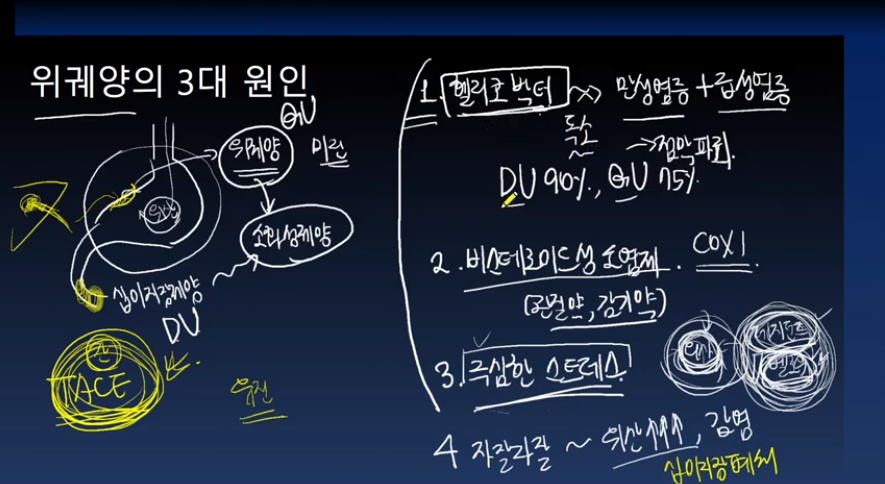 위궤양의 3대 원인
GU
위궤양
미란
위산
소화성궤양
십이지장궤양
DU
간
TACE
유전
1. 헬리코박터 만성염증 + 급성염증
독소
→ 점막파괴.
DU 90%, GU 75%.
2. 비스테로이드성 소염제. COX1
(관절약, 감기약)
3. 극심한 스트레스
위산
4 자잘자잘 ~ 위산↑↑↑, 감염
십이지장폐쇄